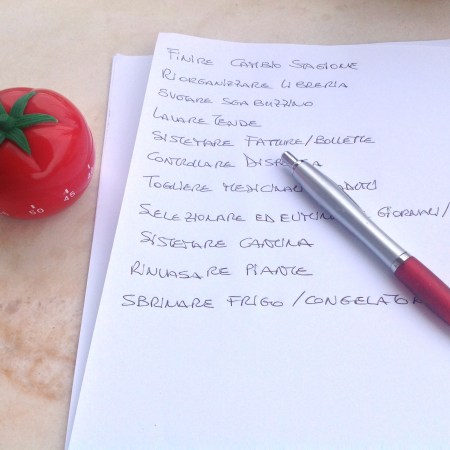 FINIRE CAMBIO STAGIONE
RIORGANIZZARE LIBRERIA
SVUOTARE SGABUZZINO
LAVARE TENDE
SISTEMARE FATTURE/BOLLETTE
CONTROLLARE
TOGLIERE
SELEZIONARE ED GIORNALI/
SISTEMARE CANTINA
RINVASARE PIANTE
SBRINARE FRIGO/
50
45